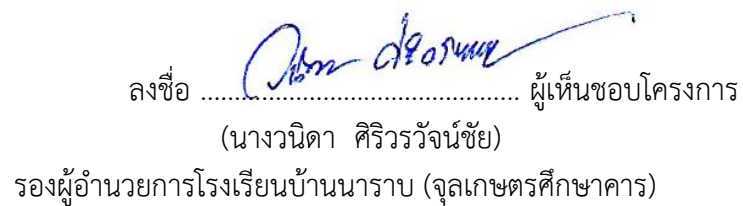 ลงชื่อ ................................................ ผู้เห็นชอบโครงการ
(นางวนิดา ศิริวรวัจน์ชัย)
รองผู้อำนวยการโรงเรียนบ้านนาราบ (จุลเกษตรศึกษาคาร)